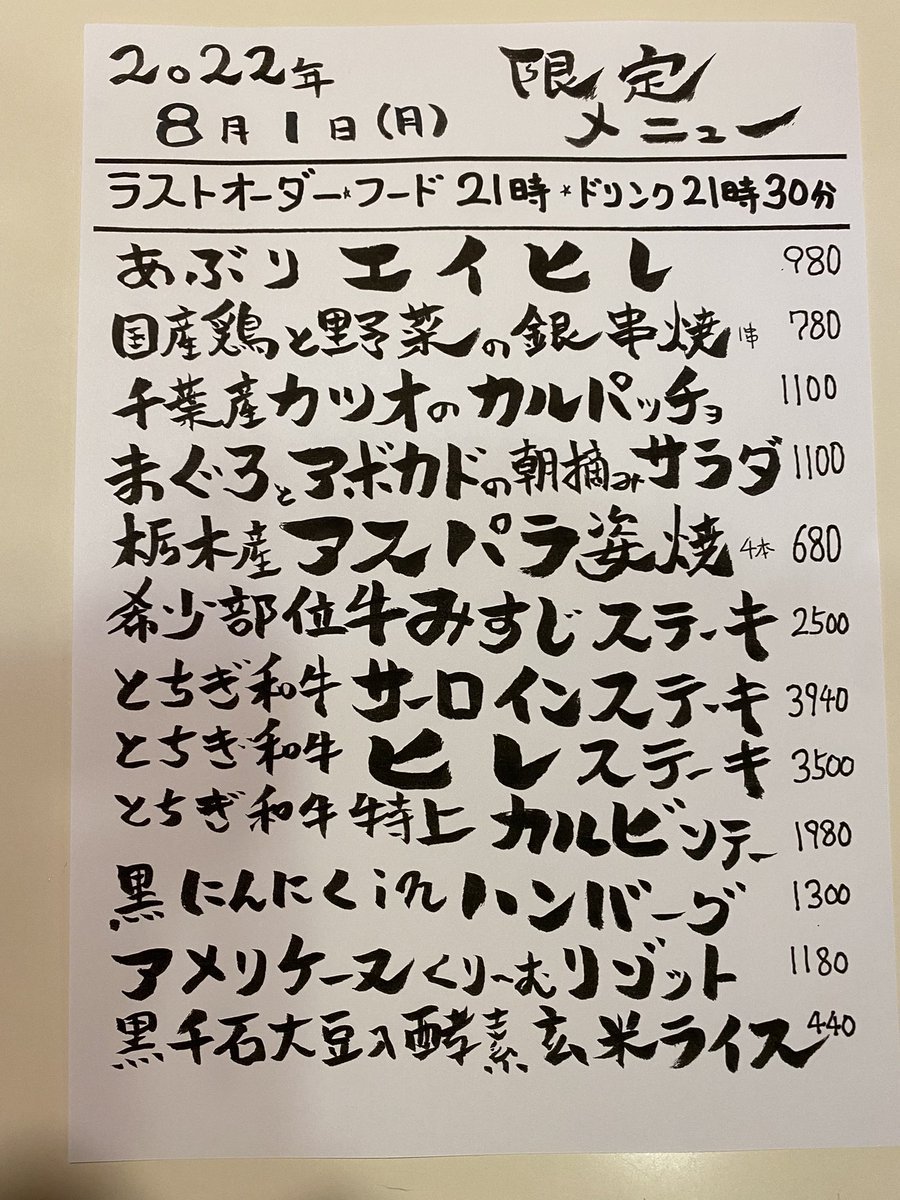 2022年 限定
8月1日(月) メニュー
ラストオーダー*フード 21時 *ドリンク21時30分
あぶりエイヒレ 980
国産鶏と野菜の銀串焼 1串 780
千葉産カツオのカルパッチョ 1100
まぐろとアボカドの朝摘みサラダ 1100
栃木産アスパラ姿焼 4本 680
希少部位牛みすじステーキ 2500
とちぎ和牛サーロインステーキ 3940
とちぎ和牛ヒレステーキ 3500
とちぎ和牛特上カルビソテー 1980
黒にんにくinハンバーグ 1300
アメリケーヌくりーむリゾット 1180
黒千石大豆入酵素玄米ライス 440